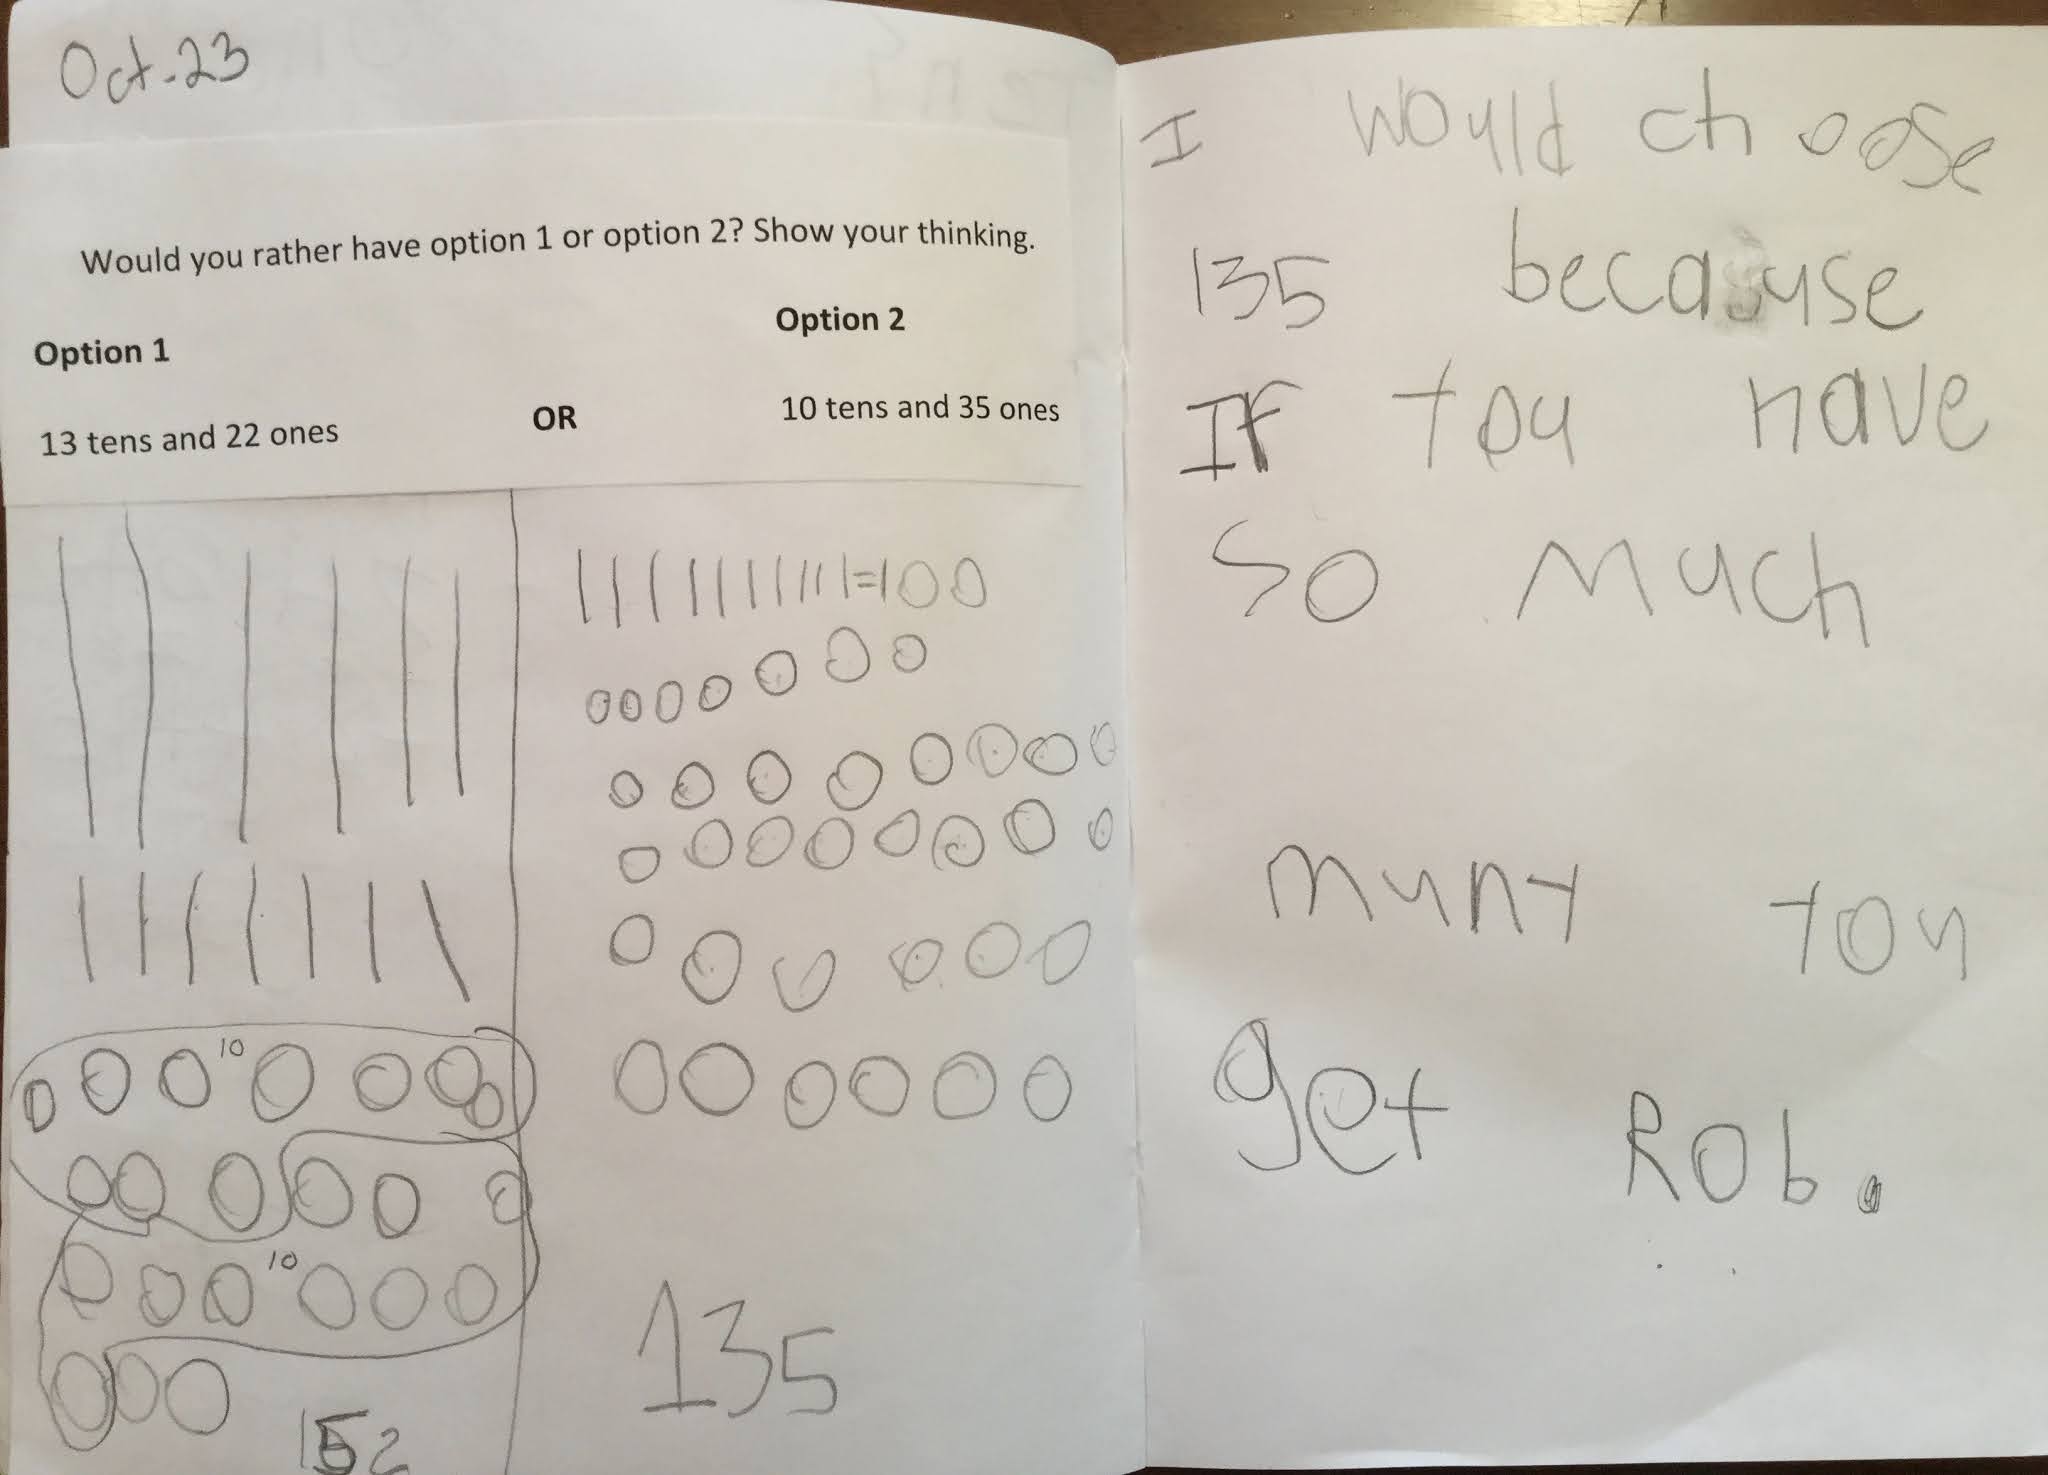 Oct. 23
Would you rather have option 1 or option 2? Show your thinking.
Option 1
Option 2
13 tens and 22 ones
OR
10 tens and 35 ones
=100
10
10
152
135
I would choose
135 because
If you have
so much
muny you
get Rob.